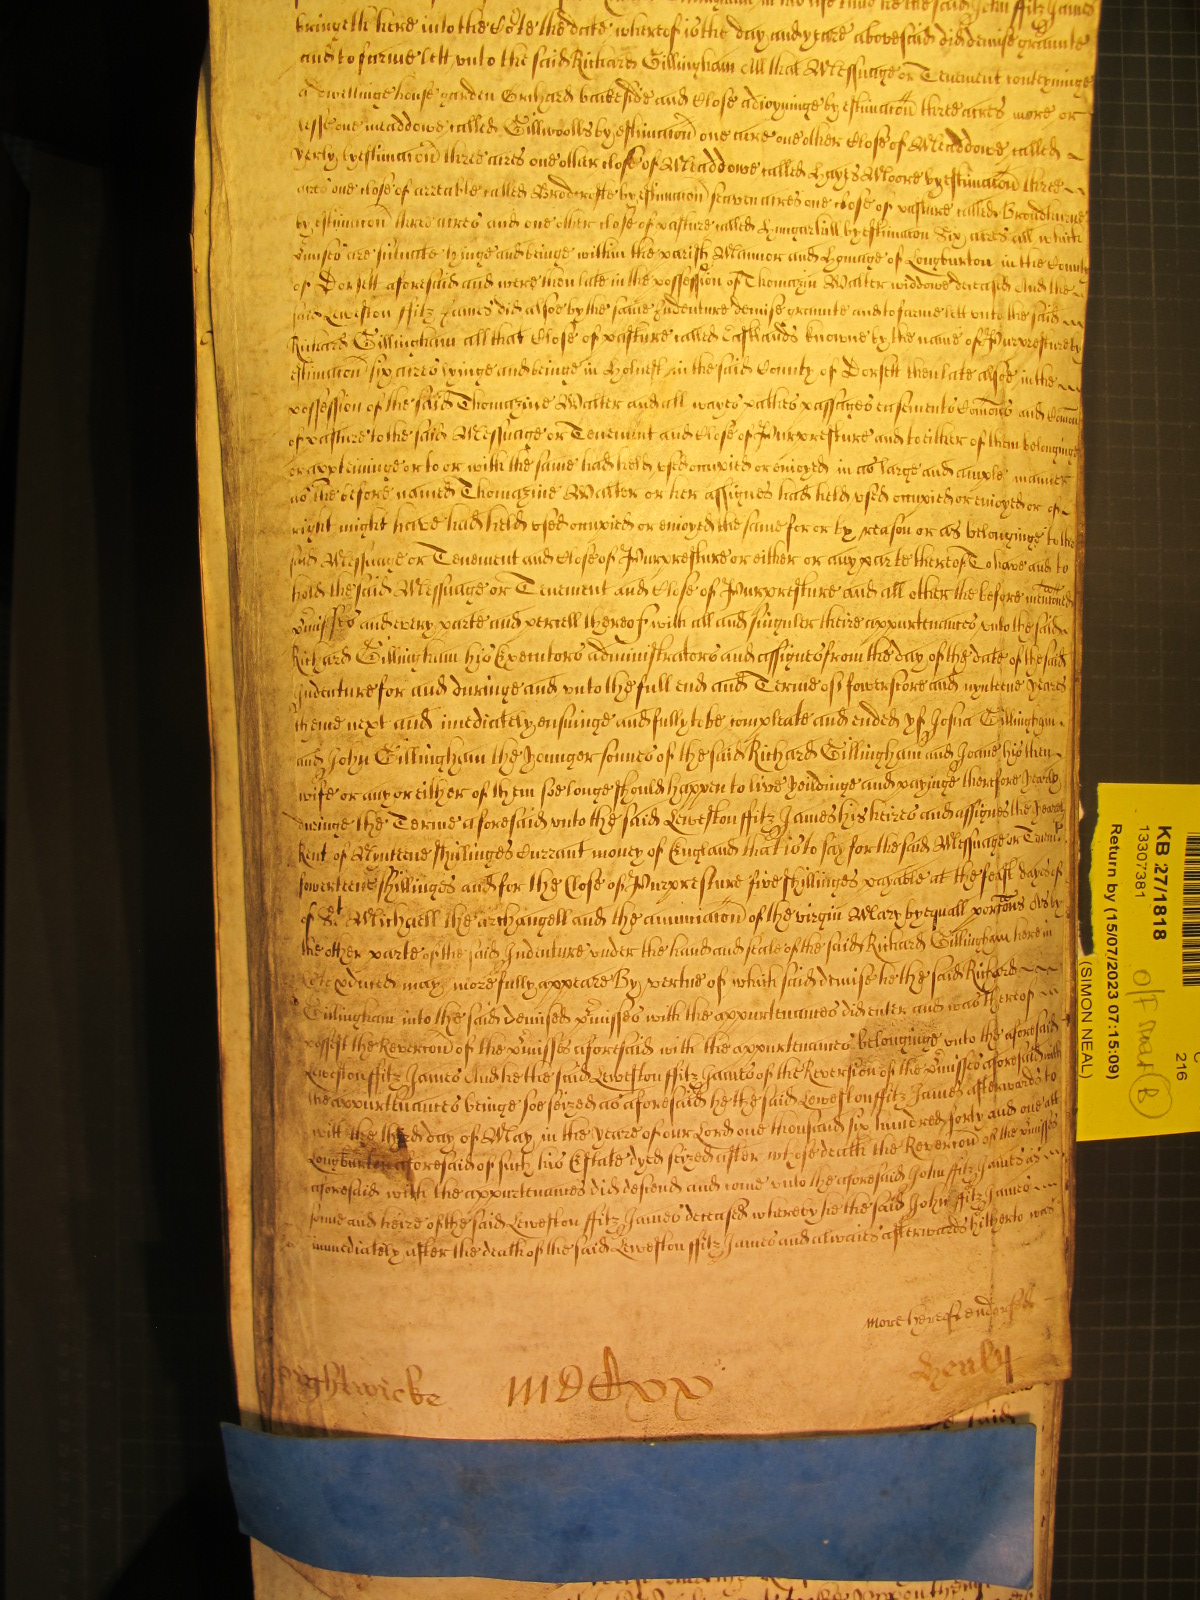 the said John ffitz James
bringeth here into the Cote the date whereof is the day and yeare abovesaid did demise graunte
and to farme lett unto the said Richard Gillingham All that Messuage or Tenement conteyninge
a dwellinge house garden Orchard backside and Close adioyninge by estimacon three acres more or
lesse one meaddowe called Gillwoolls by estimacon one acre one other Close of Meaddowe called
by estimacon three acres one other close of Meaddowe called Hayes Moore by estimacon three
acres one close of arreable called Brodcrofte by estimacon seaven acres one close of pasture called
by estimacon three acres and one other close of pasture called Hungerhill by estimacon six acres all which
pmisses are situate lyinge and beinge within the parish Mannor and Homage of Longburton in the County
of Dorsett aforesaid and were then late in the possession of Thomazin Walter widdowe deceased And the
said Leweston ffitz James did alsoe by the same Indenture demise graunte and to farme lett unto the said
Richard Gillingham all that Close of pasture called knowne by the name of Purpresture by
estimacon six acres lyinge and beinge in Holnest in the said County of Dorsett then late alsoe in the
possession of the said Thomazine Walter and all wayes pathes passages easements Comons and Comon
of pasture to the said Messuage or Tenement and Close of Purpresture and to either of them belonginge
or apperteininge or to or with the same had held used occupied or enioyed in as large and ample manner
as the before named Thomazine Walter or her assignes had held used occupied or enioyed or of
right might have had held used occupied or enioyed the same for or by reason or as belonginge to the
said Messuage or Tenement and Close of Purpresture or either or any parte thereof To have and to
hold the said Messuage or Tenement and Close of Purpresture and all other the before mentioned
pmisses and every parte and percell thereof with all and singuler theire appurtenances unto the said
Richard Gillingham his Executors administrators and assignes from the day of the date of the said
Indenture for and duringe and unto the full end and Terme of fowerscore and nynteene yeares
thence next and imediately ensuinge and fully to be compleate and ended yf Josua Gillingham
and John Gillingham the younger sonnes of the said Richard Gillingham and Joane his then
wife or any or either of them soe longe should happen to live yeildinge and payinge therefore yearly
duringe the Terme aforesaid unto the said Leweston ffitz James his heires and assignes the yearely
Rent of Nynteene shillinges Currant money of England that is to say for the said Messuage or Tenemt
fowerteene shillinges and for the Close of Purpresture five shillinges payable at the feast dayes of
of St Michaell the archangell and the annunciacon of the virgin Mary by equall portons As by
the other parte of the said Indenture under the hand and seale of the said Richard Gillingham here in
Cote pduced may more fully appeare By vertue of which said demise he the said Richard
Gillingham into the said demised pmisses with the appurtenances did enter and was thereof
possest the Revercon of the pmisses aforesaid with the appurtenances belonginge unto the aforesaid
Leweston ffitz James And he the said Leweston ffitz James of the Reversion of the pmisses aforesaid with
the appurtenances beinge soe seized as aforesaid he the said Leweston ffitz James afterwards to
witt the third day of May in the yeare of our Lord one thousand six hundred forty and one att
Longburton aforesaid of such his Estate dyed seized after whose death the Revercon of the pmisses
aforesaid with the appurtenances did descend and come unto the aforesaid John ffitz James as
sonne and heire of the said Leweston ffitz James deceased whereby he the said John ffitz James
immediately after the death of the said Leweston ffitz James and alwaies afterwards hitherto was
more hereof endorsed
ightwicke
Henly
KB 27/1818
13307381
Return by (15/07/2023 07:15:09)
(SIMON NEAL)
216
B